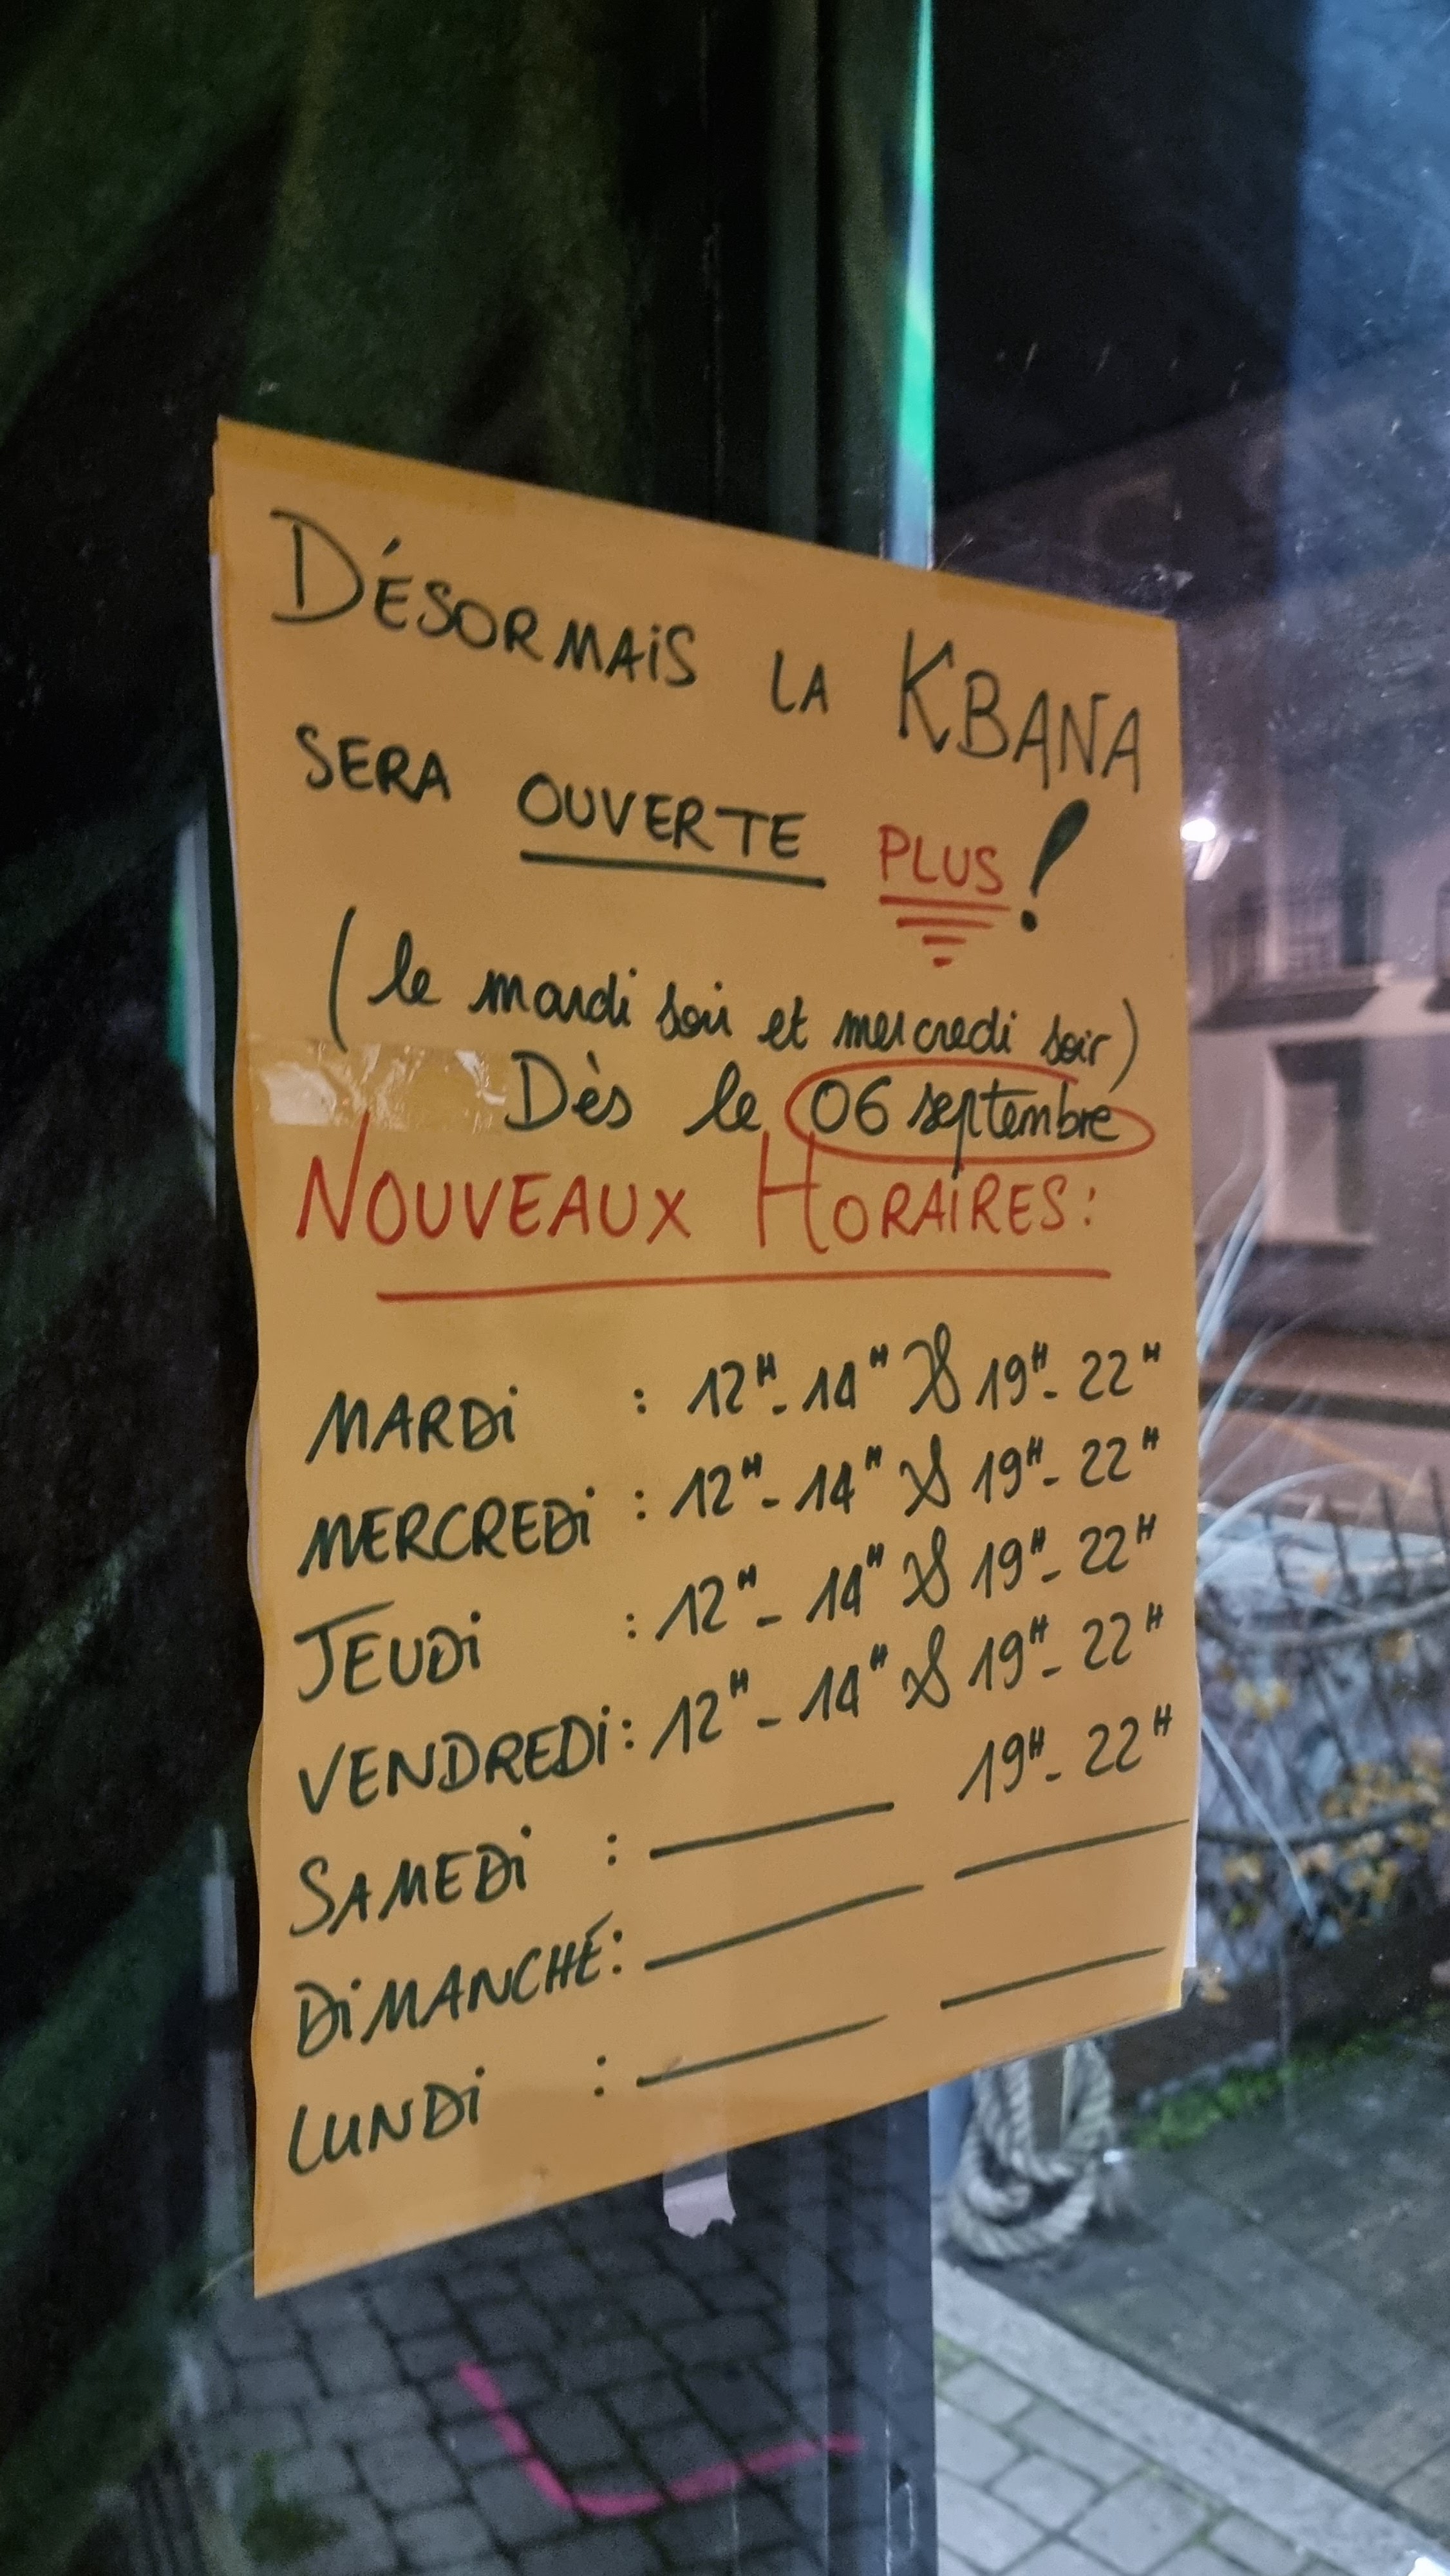 DÉSORMAIS LA KBANA
SERA OUVERTE PLUS !
(le mardi soir et mercredi soir)
Dès le 06 septembre
NOUVEAUX HORAIRES :
MARDI : 12H - 14H & 19H - 22H
MERCREDI : 12H - 14H & 19H - 22H
JEUDI : 12H - 14H & 19H - 22H
VENDREDI : 12H - 14H & 19H - 22H
SAMEDI : — 19H - 22H
DIMANCHE : — —
LUNDI : — —